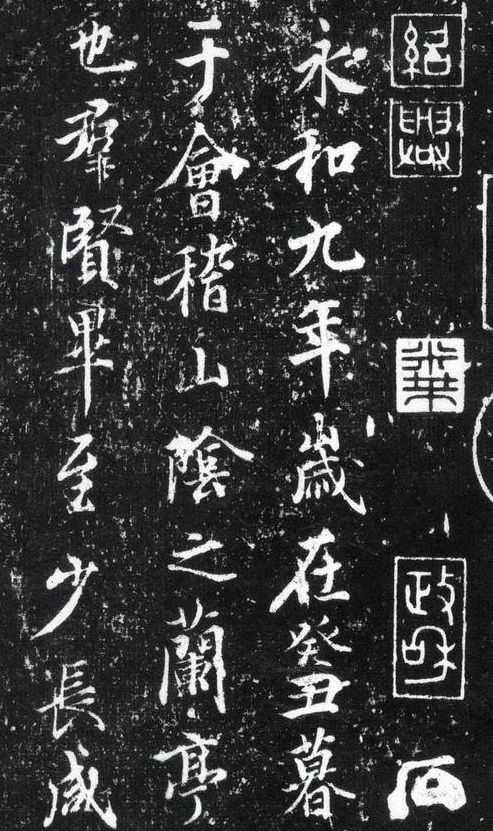 紹興
政和
永和九年歲在癸丑暮
于會稽山陰之蘭亭
也羣賢畢至少長咸